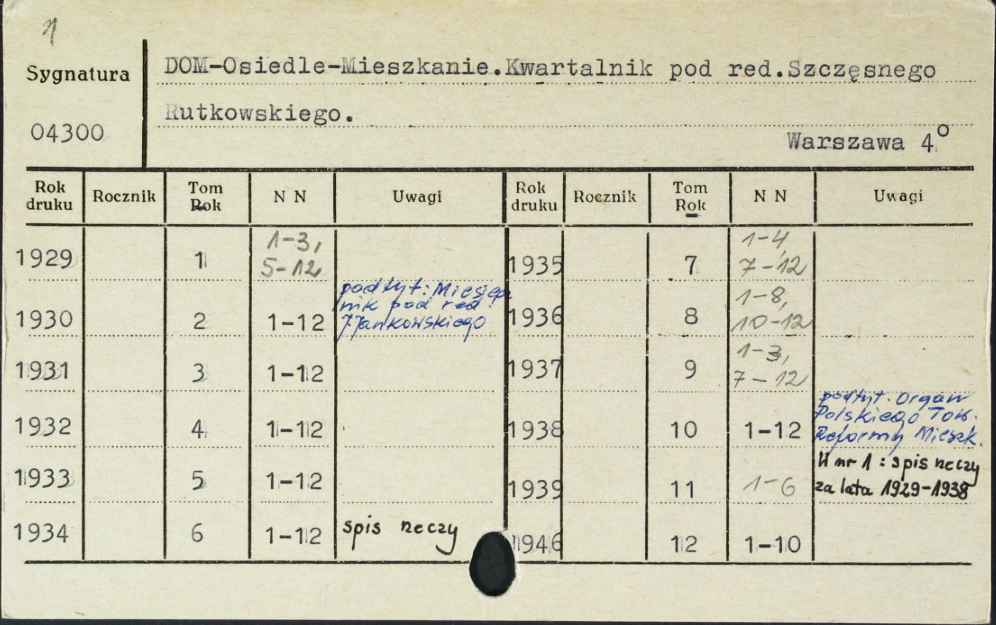 Sygnatura
04300
DOM-Osiedle-Mieszkanie.Kwartalnik pod red.Szczęsnego
Rutkowskiego.
Warszawa 4º
Rok druku Rocznik Tom Rok N N Uwagi Rok druku Rocznik Tom Rok N N Uwagi
1929 1 1-3, 5-12 1935 7 1-4 7-12
1930 2 1-12 podtyt: Miesięcznik pod red. J.Jankowskiego 1936 8 1-8, 10-12
1931 3 1-12 1937 9 1-3, 7-12
1932 4 1-12 1938 10 1-12 podtyt. Organ Polskiego Tow. Reformy Mieszk.
1933 5 1-12 1939 11 1-6 W nr 1: spis rzeczy za lata 1929-1938
1934 6 1-12 spis rzeczy 1946 12 1-10